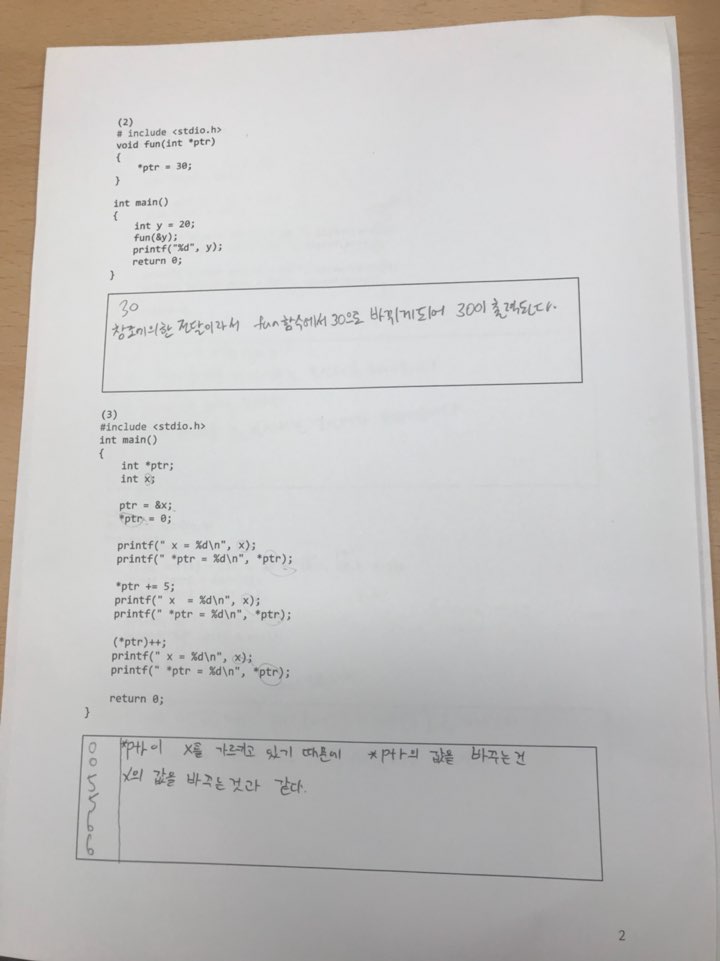 (2)
# include <stdio.h>
void fun(int *ptr)
{
*ptr = 30;
}
int main()
{
int y = 20;
fun(&y);
printf("%d", y);
return 0;
}
30
참조에의한 전달이라서 fun함수에서 30으로 바뀌게되어 30이 출력된다.
(3)
#include <stdio.h>
int main()
{
int *ptr;
int x;
ptr = &x;
*ptr = 0;
printf(" x = %d\n", x);
printf(" *ptr = %d\n", *ptr);
*ptr += 5;
printf(" x  = %d\n", x);
printf(" *ptr = %d\n", *ptr);
(*ptr)++;
printf(" x = %d\n", x);
printf(" *ptr = %d\n", *ptr);
return 0;
}
0 *ptr이 x를 가르키고 있기 때문에 *ptr의 값을 바꾸는건
0 x의 값을 바꾸는것과 같다.
5
5
6
6
2